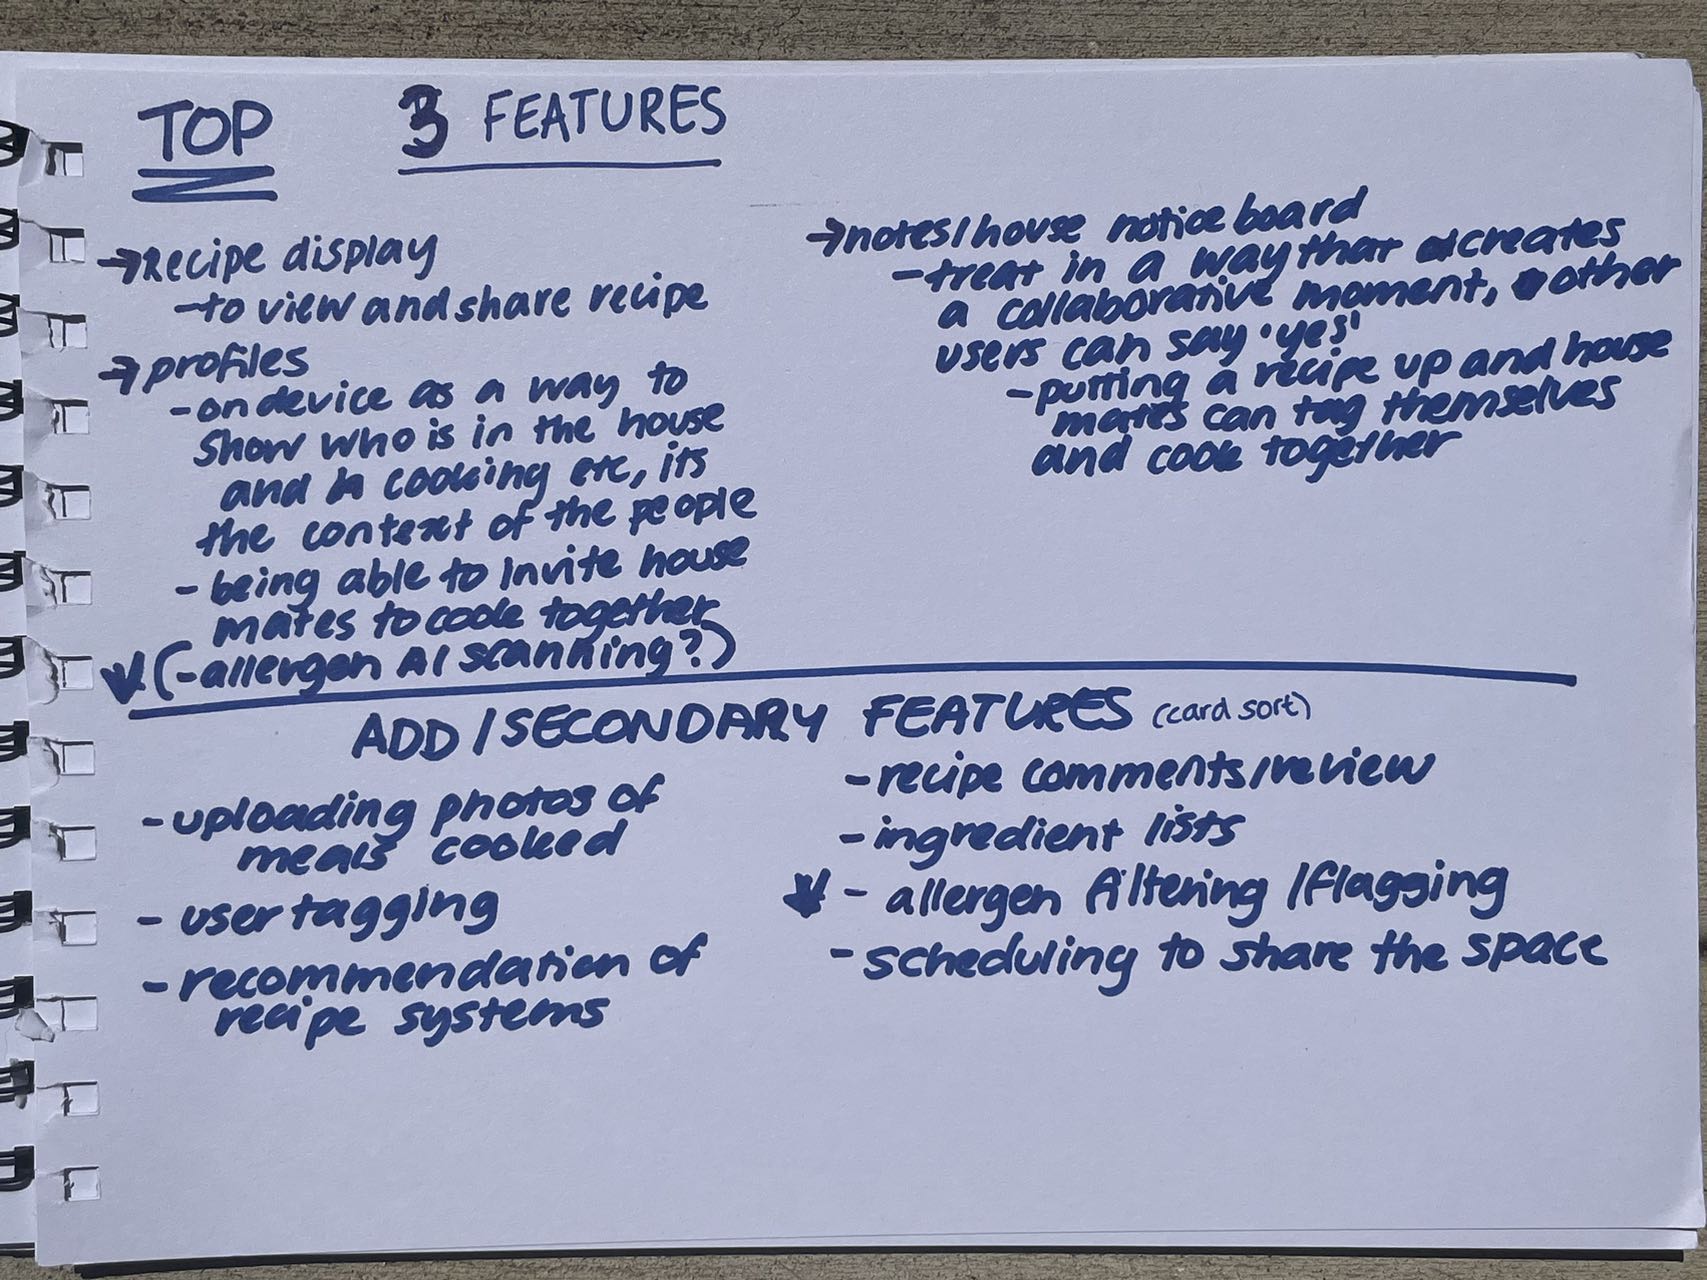 TOP 3 FEATURES
→Recipe display
-to view and share recipe
→profiles
-on device as a way to
show who is in the house
and cooking etc, its
the context of the people
- being able to invite house
mates to cook together
↓(-allergen AI scanning?)
→notes/house notice board
-treat in a way that creates
a collaborative moment, other
users can say 'yes'
-putting a recipe up and house
mates can tag themselves
and cook together
ADD/SECONDARY FEATURES (card sort)
-uploading photos of
meals cooked
- user tagging
-recommendation of
recipe systems
-recipe comments/review
-ingredient lists
↓ - allergen filtering /flagging
-scheduling to share the space